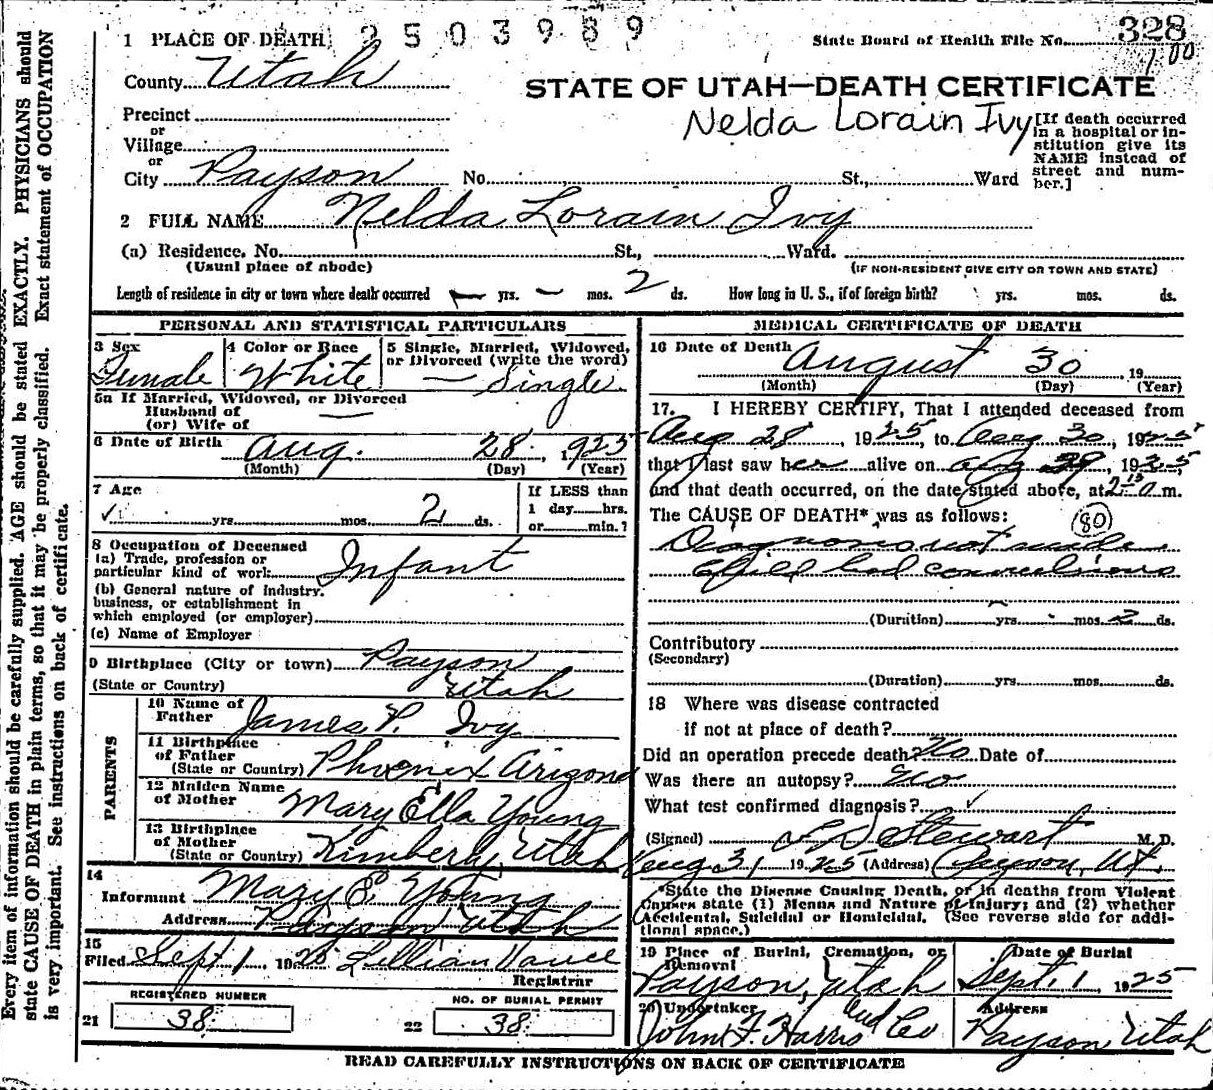 1 PLACE OF DEATH 2503989
State Board of Health File No. 328
100
County Utah
STATE OF UTAH—DEATH CERTIFICATE
Nelda Lorain Ivy
Precinct
or
Village
or
City Payson No. St., Ward
[If death occurred
in a hospital or in-
stitution give its
NAME instead of
street and num-
ber.]
2 FULL NAME Nelda Lorain Ivy
(a) Residence. No. St., Ward.
(Usual place of abode) (IF NON-RESIDENT GIVE CITY OR TOWN AND STATE)
Length of residence in city or town where death occurred — yrs. — mos. 2 ds. How long in U. S., if of foreign birth? yrs. mos. ds.
PERSONAL AND STATISTICAL PARTICULARS
3 Sex
Female
4 Color or Race
White
5 Single, Married, Widowed,
or Divorced (write the word)
— Single
5a If Married, Widowed, or Divorced
Husband of
(or) Wife of —
6 Date of Birth Aug. 28, 1925
(Month) (Day) (Year)
7 Age
yrs. mos. 2 ds.
If LESS than
1 day hrs.
or min.?
8 Occupation of Deceased
(a) Trade, profession or
particular kind of work Infant
(b) General nature of industry,
business, or establishment in
which employed (or employer)
(c) Name of Employer
9 Birthplace (City or town) Payson
(State or Country) Utah
PARENTS
10 Name of
Father James P. Ivy
11 Birthplace
of Father
(State or Country) Phoenix Arizona
12 Maiden Name
of Mother Mary Ella Young
13 Birthplace
of Mother
(State or Country) Kimberly, Utah
14
Informant Mary E. Young
Address Payson Utah
15
Filed Sept 1, 1925 Lillian Vance
Registrar
REGISTERED NUMBER
21 38
NO. OF BURIAL PERMIT
22 38
MEDICAL CERTIFICATE OF DEATH
16 Date of Death August 30, 19
(Month) (Day) (Year)
17. I HEREBY CERTIFY, That I attended deceased from
Aug 28, 1925, to Aug 30, 1925
that I last saw her alive on Aug 29, 1925,
and that death occurred, on the date stated above, at 2-15 a m.
The CAUSE OF DEATH* was as follows:
80
Diagnosis not made
Child had convulsions
(Duration) yrs. mos. 2 ds.
Contributory
(Secondary)
(Duration) yrs. mos. ds.
18 Where was disease contracted
if not at place of death?
Did an operation precede death? No Date of
Was there an autopsy? No
What test confirmed diagnosis?
(Signed) L D Stewart M. D.
Aug 31, 1925 (Address) Payson, Ut.
*State the Disease Causing Death, or in deaths from Violent
Causes state (1) Means and Nature of Injury; and (2) whether
Accidental, Suicidal or Homicidal. (See reverse side for addi-
tional space.)
19 Place of Burial, Cremation, or
Removal
Payson, Utah
Date of Burial
Sept. 1 1925
20 Undertaker
John F. Harris and Co
Address
Payson Utah
READ CAREFULLY INSTRUCTIONS ON BACK OF CERTIFICATE
Every item of information should be carefully supplied. AGE should be stated EXACTLY. PHYSICIANS should
state CAUSE OF DEATH in plain terms, so that it may be properly classified. Exact statement of OCCUPATION
is very important. See instructions on back of certificate.